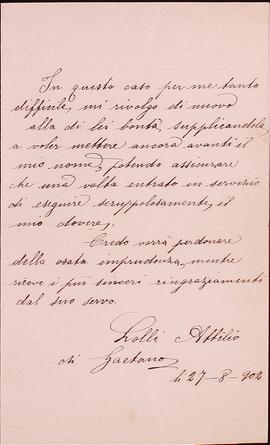 In questo caso per me tanto
difficile, mi rivolgo di nuovo
alla di lei bontà, supplicandola
a voler mettere ancora avanti il
mio nome, potendo assicurare
che una volta entrato in servizio
di eseguire scruppolotamente, il
mio dovere.
Credo vorrà perdonare
della osata imprudenza, mentre
riceve i più sinceri ringraziamenti
dal suo servo.
Lolli Attilio
di Gaetano
li 27-8-902